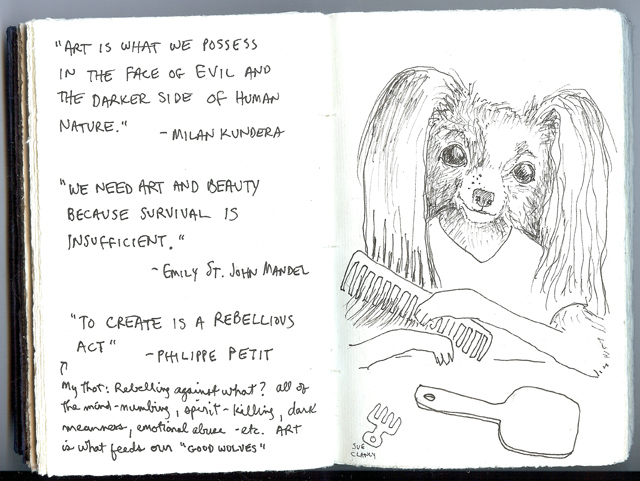 "ART IS WHAT WE POSSESS
IN THE FACE OF EVIL AND
THE DARKER SIDE OF HUMAN
NATURE."
- MILAN KUNDERA
"WE NEED ART AND BEAUTY
BECAUSE SURVIVAL IS
INSUFFICIENT."
~ EMILY ST. JOHN MANDEL
"TO CREATE IS A REBELLIOUS
ACT"
- PHILIPPE PETIT
My thot: Rebelling against what? all of
the mind-numbing, spirit-killing, dark
meanness, emotional abuse - etc. ART
is what feeds our "GOOD WOLVES"
SUE
CLANCY